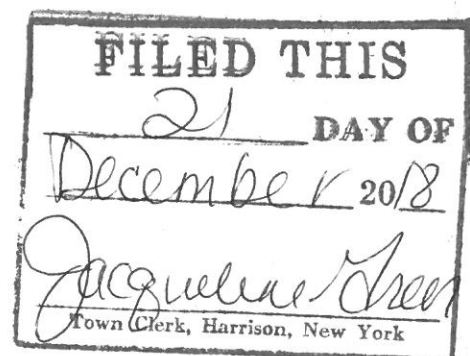 FILED THIS
21 DAY OF
December 2018
Jacqueline Greer
Town Clerk, Harrison, New York